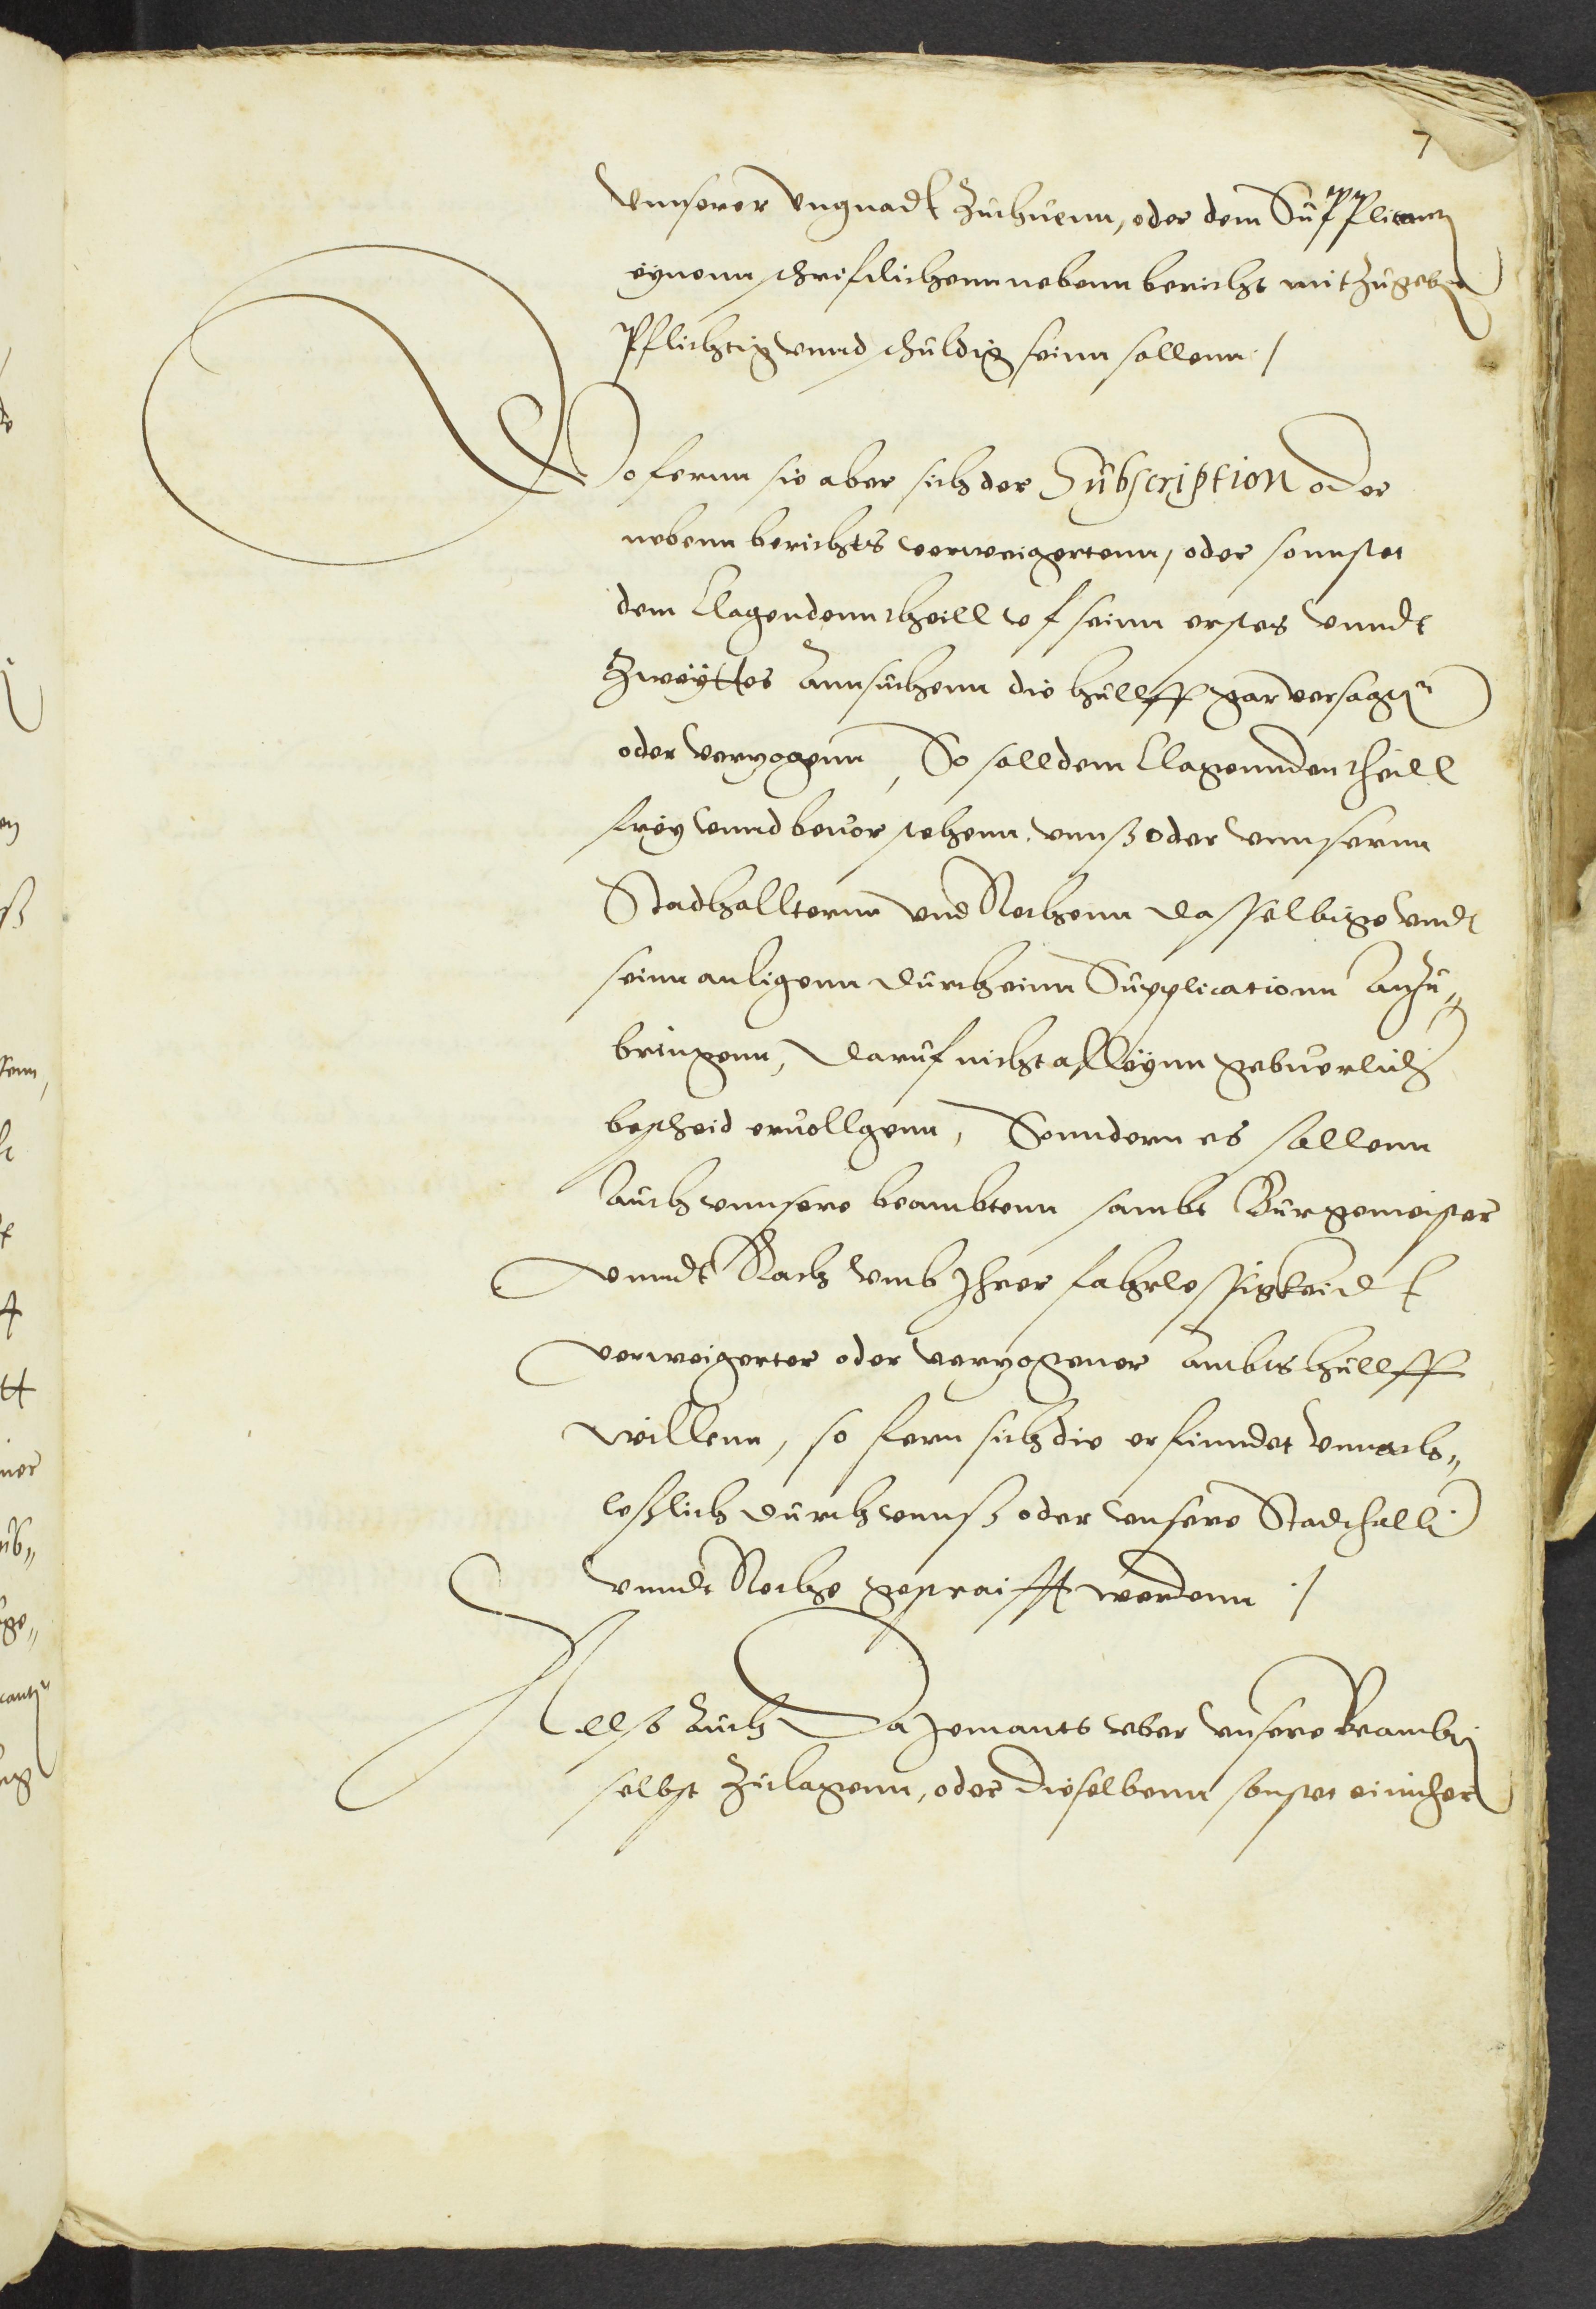 7
vnnserer vngnadt zuthuenn, oder dem Supplicantn
eynenn schrifdlichenn nebenn bericht mit zugebn
Pflichtig vnnd schuldig seinn sollenn /
Wofernn sie aber sich der Subscription oder
nebenn berichts verweigertenn, oder sonnstet
dem Clagendenn theill vf seinn erstes vnndt
zweyttes Annsuchenn die hullff gar versagtn
oder verzogenn, So soll dem Clagennden theill
frey vnnd beuor stehenn vnnß oder vnnsernn
Stadhallternn vnd Rethenn dasselbige vndt
seinn anligenn durch einn Supplicationn Anzu„
bringenn, daruf nicht alleynn gebuerlich
bescheid eruollgenn, Sonndern es sollenn
Auch vnnsere beambtenn sambt Burgemeister
vnndt Rath vmb Ihrer fahrlessigkeidt
verweigerter oder verzogener Ambtshullff
willenn, so fern sich die erfinndet vnnach„
leßlich durch vnnß oder vnsere Stadthallt
vnndt Rethe gestraifft werdenn /
Allso Auch Da Jemants vber vnsere Beambtn
selbst zuclagenn, oder dieselbenn sonstet einicher